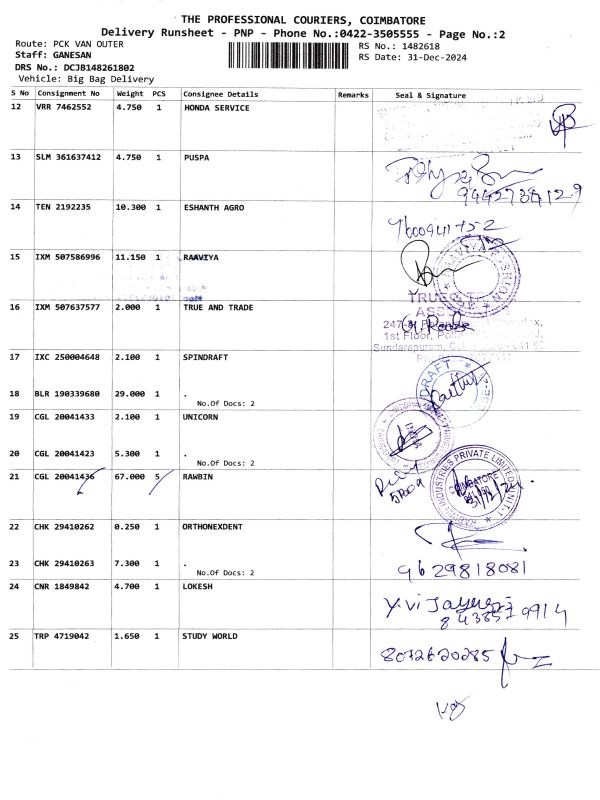 THE PROFESSIONAL COURIERS, COIMBATORE
Delivery Runsheet - PNP - Phone No.:0422-3505555 - Page No.:2
Route: PCK VAN OUTER
RS No.: 1482618
Staff: GANESAN
RS Date: 31-Dec-2024
DRS No.: DCJB148261802
Vehicle: Big Bag Delivery
S No Consignment No Weight PCS Consignee Details Remarks Seal & Signature
12 VRR 7462552 4.750 1 HONDA SERVICE
13 SLM 361637412 4.750 1 PUSPA
9442734129
14 TEN 2192235 10.300 1 ESHANTH AGRO
9600941752
15 IXM 507586996 11.150 1 RAAVIYA
16 IXM 507637577 2.000 1 TRUE AND TRADE
17 IXC 250004648 2.100 1 SPINDRAFT
18 BLR 190339680 29.000 1 .
No.Of Docs: 2
19 CGL 20041433 2.100 1 UNICORN
20 CGL 20041423 5.300 1 .
No.Of Docs: 2
21 CGL 20041436 67.000 5 RAWBIN
INDUSTRIES PRIVATE LIMITED
COIMBATORE
22 CHK 29410262 0.250 1 ORTHONEXDENT
23 CHK 29410263 7.300 1 .
No.Of Docs: 2
9629818081
24 CNR 1849842 4.700 1 LOKESH
25 TRP 4719042 1.650 1 STUDY WORLD
8072620285